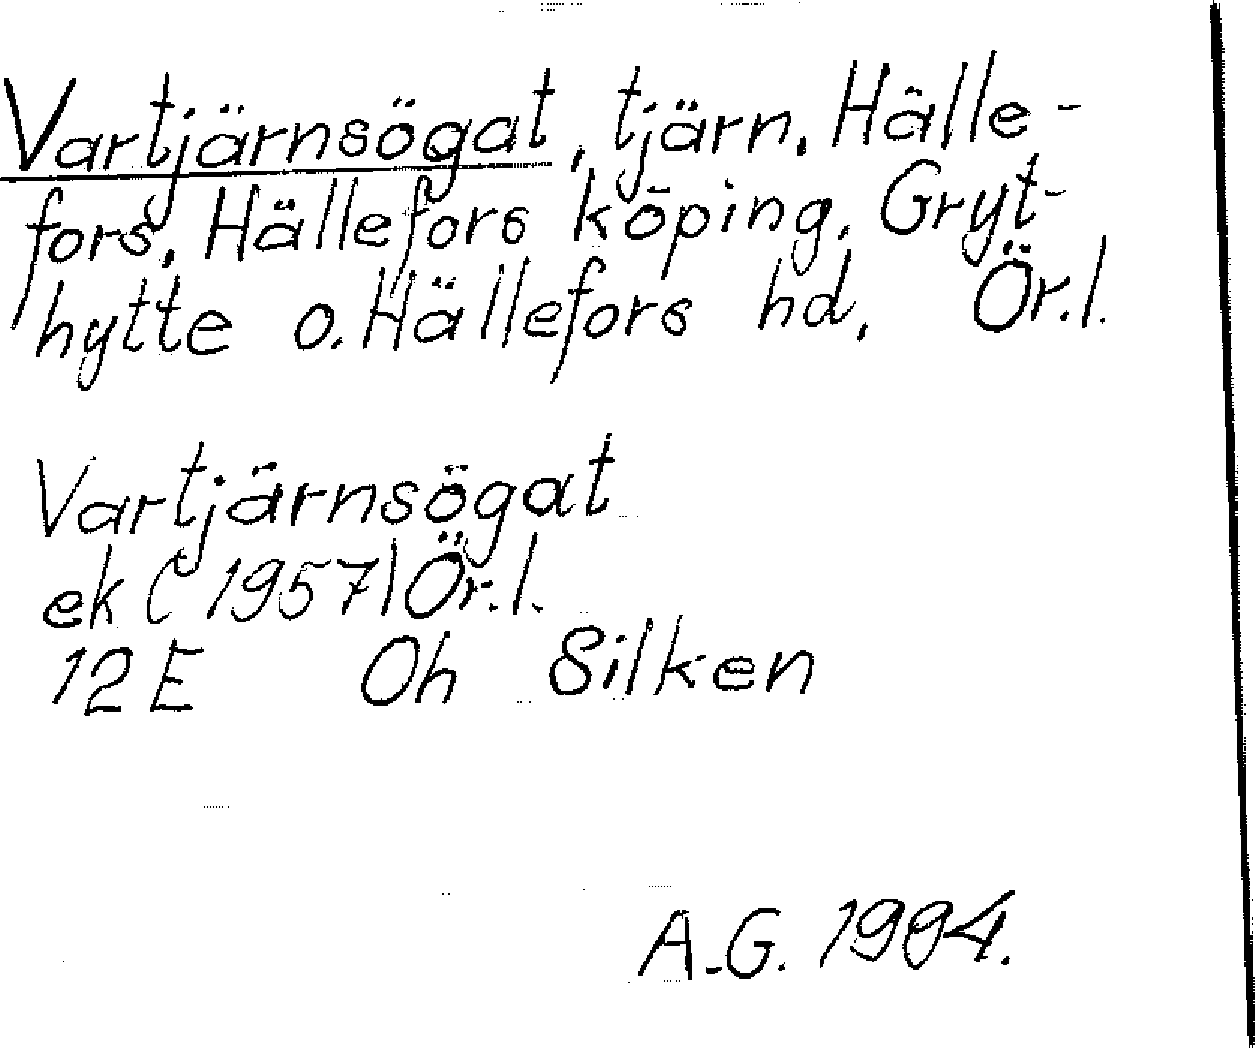 Vartjärnsögat, tjärn, Hälle-
fors, Hällefors köping, Gryt-
hytte o. Hällefors hd, Ör.l.
Vartjärnsögat
ek (1957) Ör.l.
12 E Oh Silken
A.G. 1994.